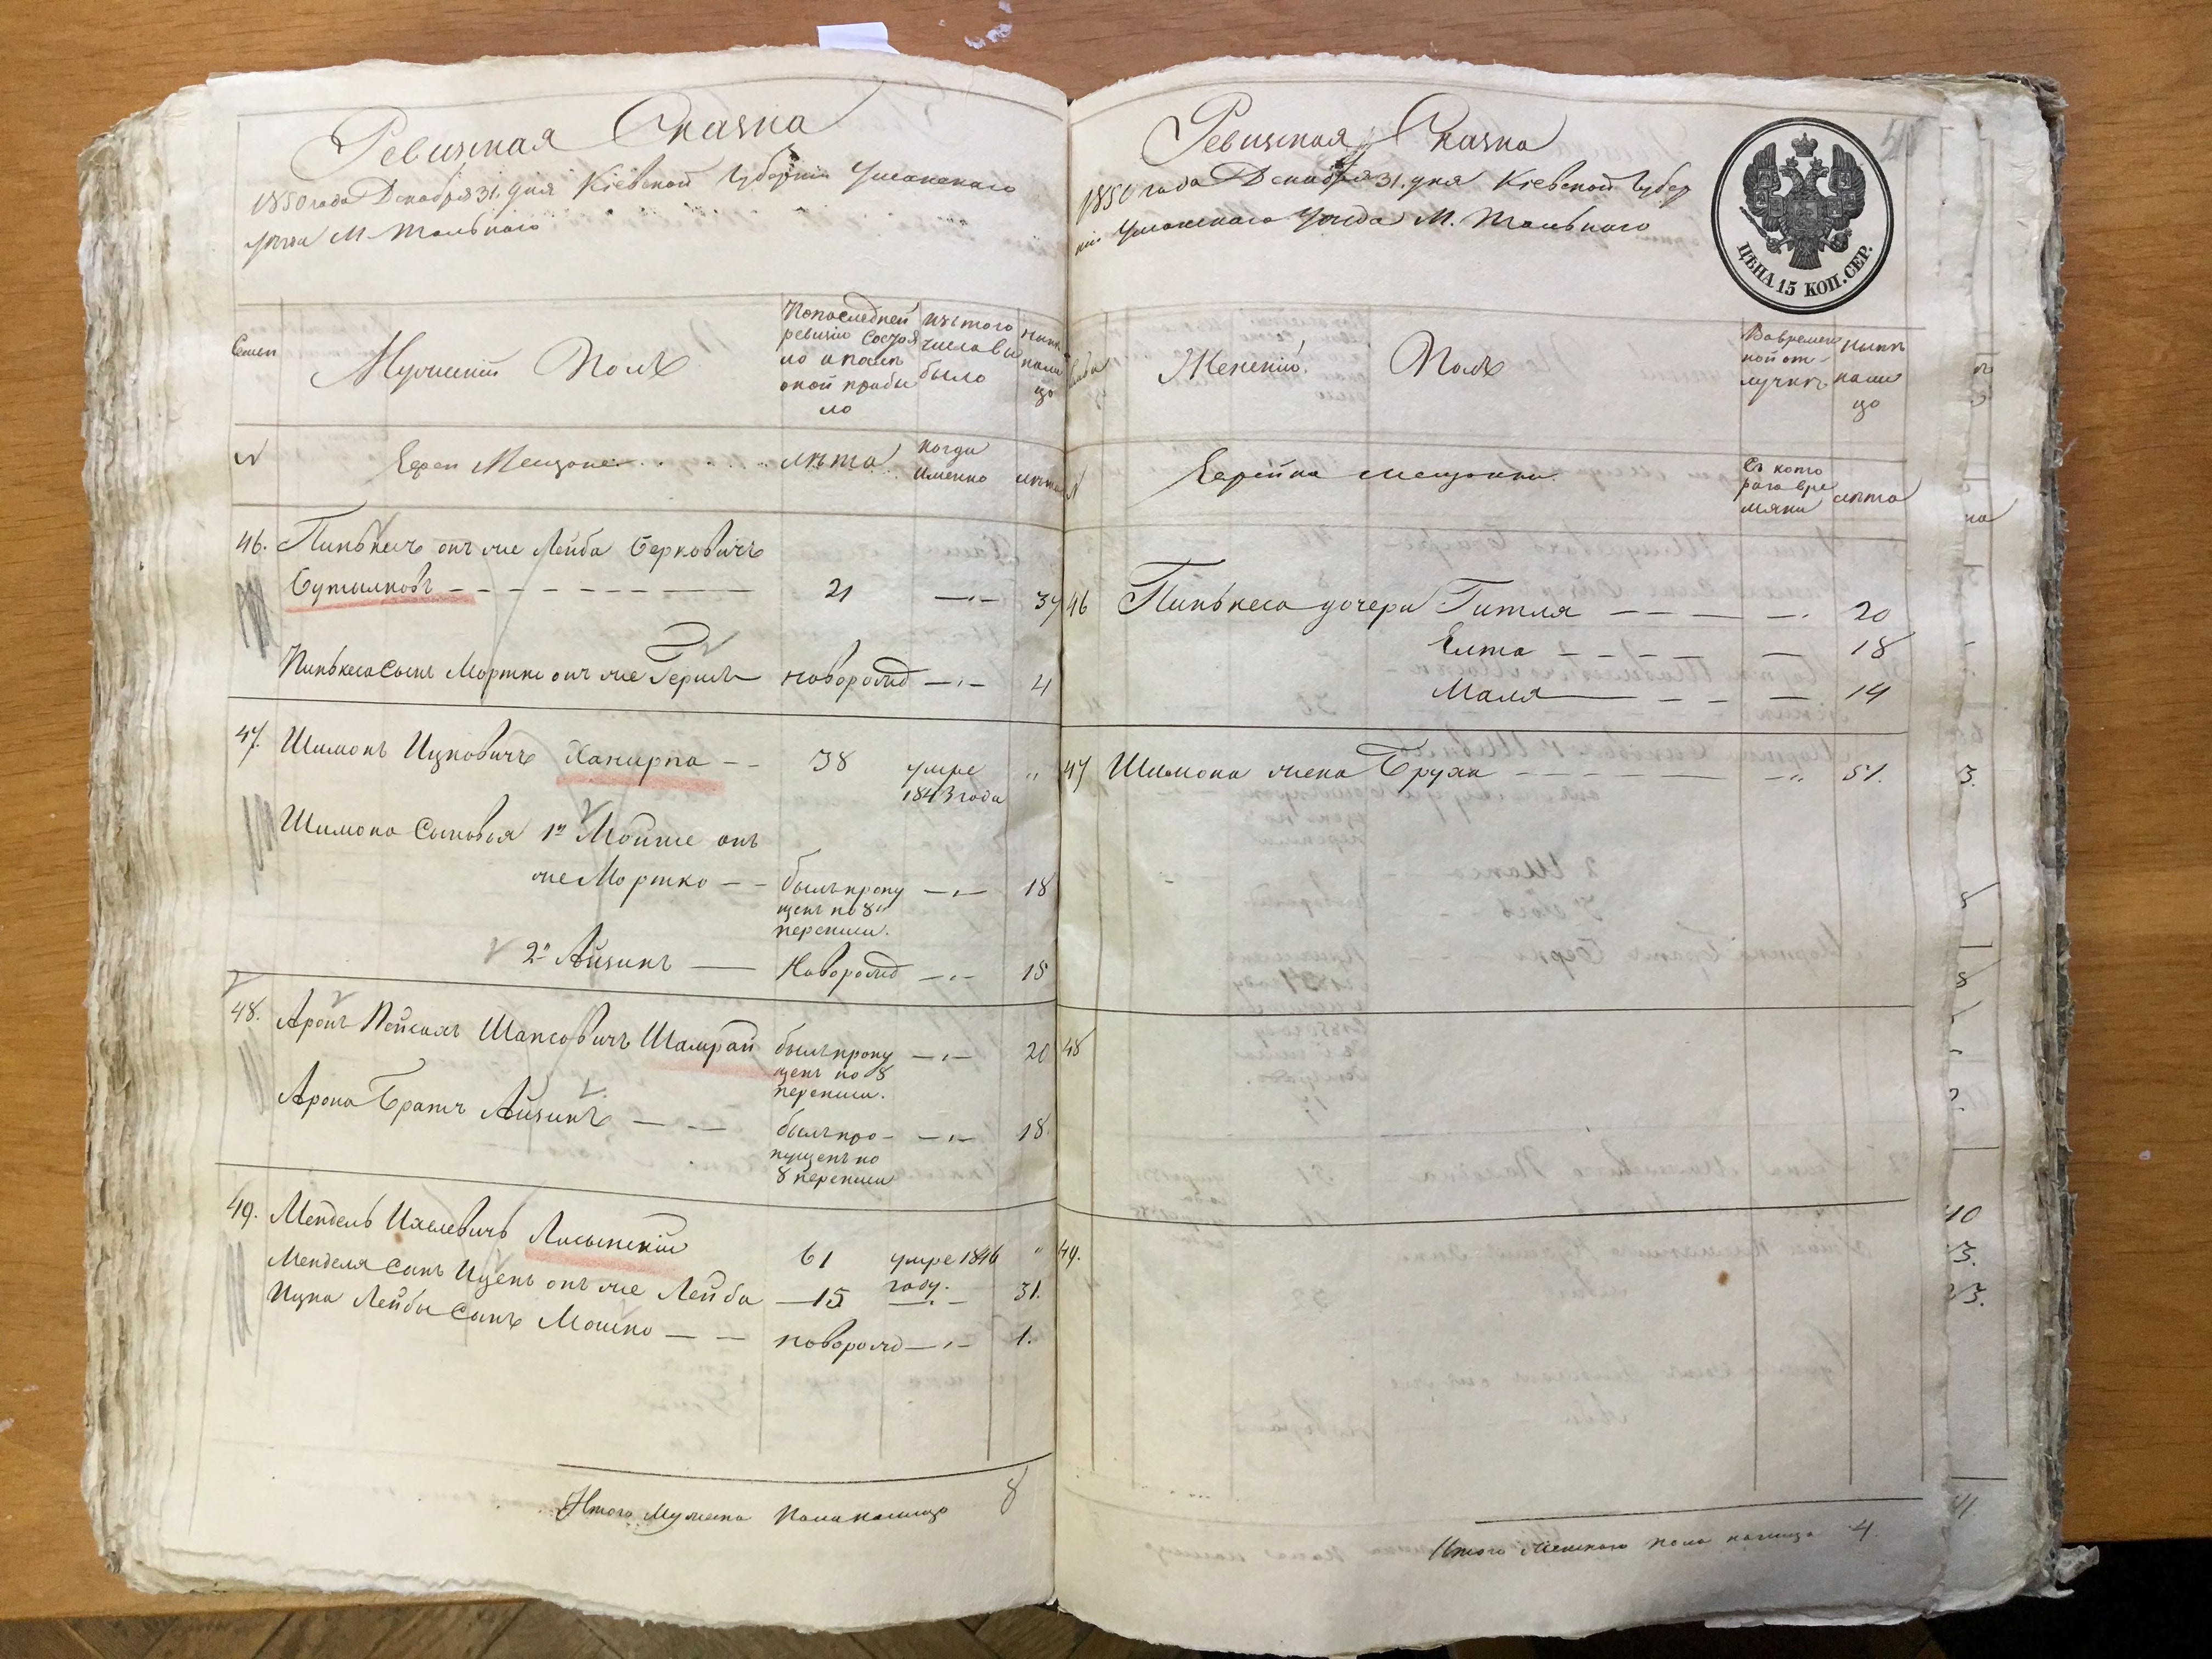 Ревизская Сказка
1850 года Декабря 31. дня Кіевской Губерніи Уманскаго
уѣзда М. Тальнаго
Семьи
Мужескій Полъ
По последней
ревизіи состоя
ло и посли
оной прибы
ло
изъ того
числа вы
было
нынѣ
нали
цо
№
Евреи Мещане
лѣта
когда
именно
лѣта
46. Пинькесъ онъ же Лейба Берковичъ
Бутылковъ 21 37
Пинькеса Сынъ Мортко онъ же Гершъ новорожд 4
47. Шимонъ Ицковичъ Ханирпа 38 умре "
1843 года
Шимона Сыновья 1й Мойше онъ
же Мортко былъ пропу 18
щенъ по 8й
переписи.
2й Айзикъ Новорожд 15
48. Аронъ Пейсахъ Шапсовичъ Шамрай былъ пропу 20
щенъ по 8
переписи.
Арона Братъ Айзикъ былъ про- 18.
пущенъ по
8 переписи
49. Мендель Ихелевичъ Лисынскій 61 умре 1846 "
году.
Менделя Сынъ Ицекъ онъ же Лейба 15 31.
Ицка Лейбы Сынъ Мошко новорожд 1.
Итого Мужеска Пола налицо 8
Ревизская Сказка
1850 года Декабря 31. дня Кіевской Губер
ніи Уманскаго Уѣзда М. Тальнаго
ЦѢНА 15 КОП. СЕР.
Женскій Полъ
Во времен
ной от-
лучкѣ
нынѣ
нали
цо
№
Еврейки мещанки.
Съ кото
раго вре
мяни
лѣта
46 Пинькеса дочери Гитля 20
Елта 18
Маля 14
47 Шимона жена Бруха 51.
48
49.
Итого Женскаго пола налицо 4.